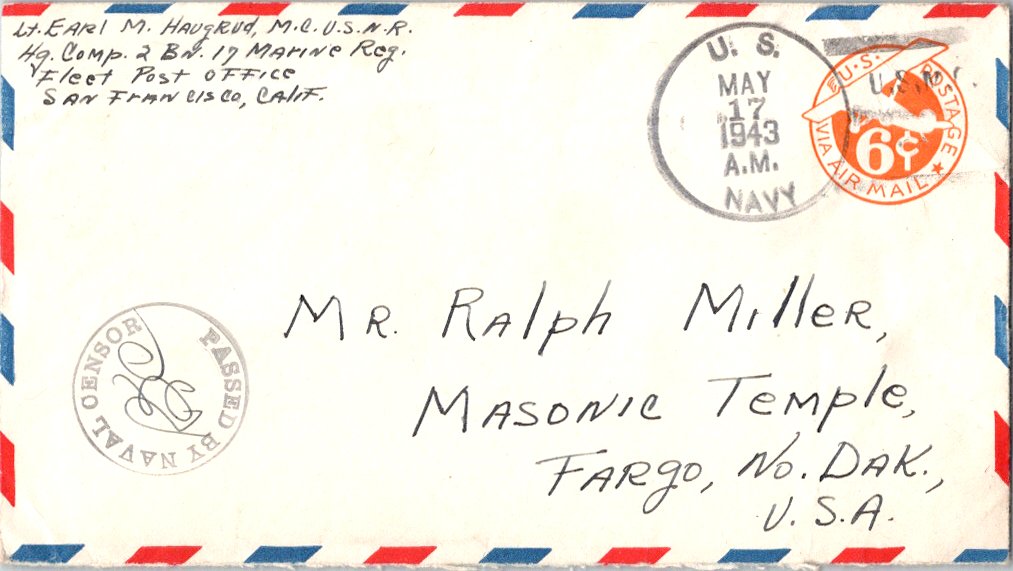 Lt. Earl M. Haugrud, M.C. U.S.N.R.
Hq. Comp. 2 Bn. 17 Marine Reg.
Fleet Post Office
San Francisco, Calif.
U. S.
MAY
17
1943
A.M.
NAVY
U.S.M.C.
U.S. POSTAGE
6¢
VIA AIR MAIL
PASSED BY NAVAL CENSOR
Mr. Ralph Miller,
Masonic Temple,
Fargo, No. Dak.,
U.S.A.